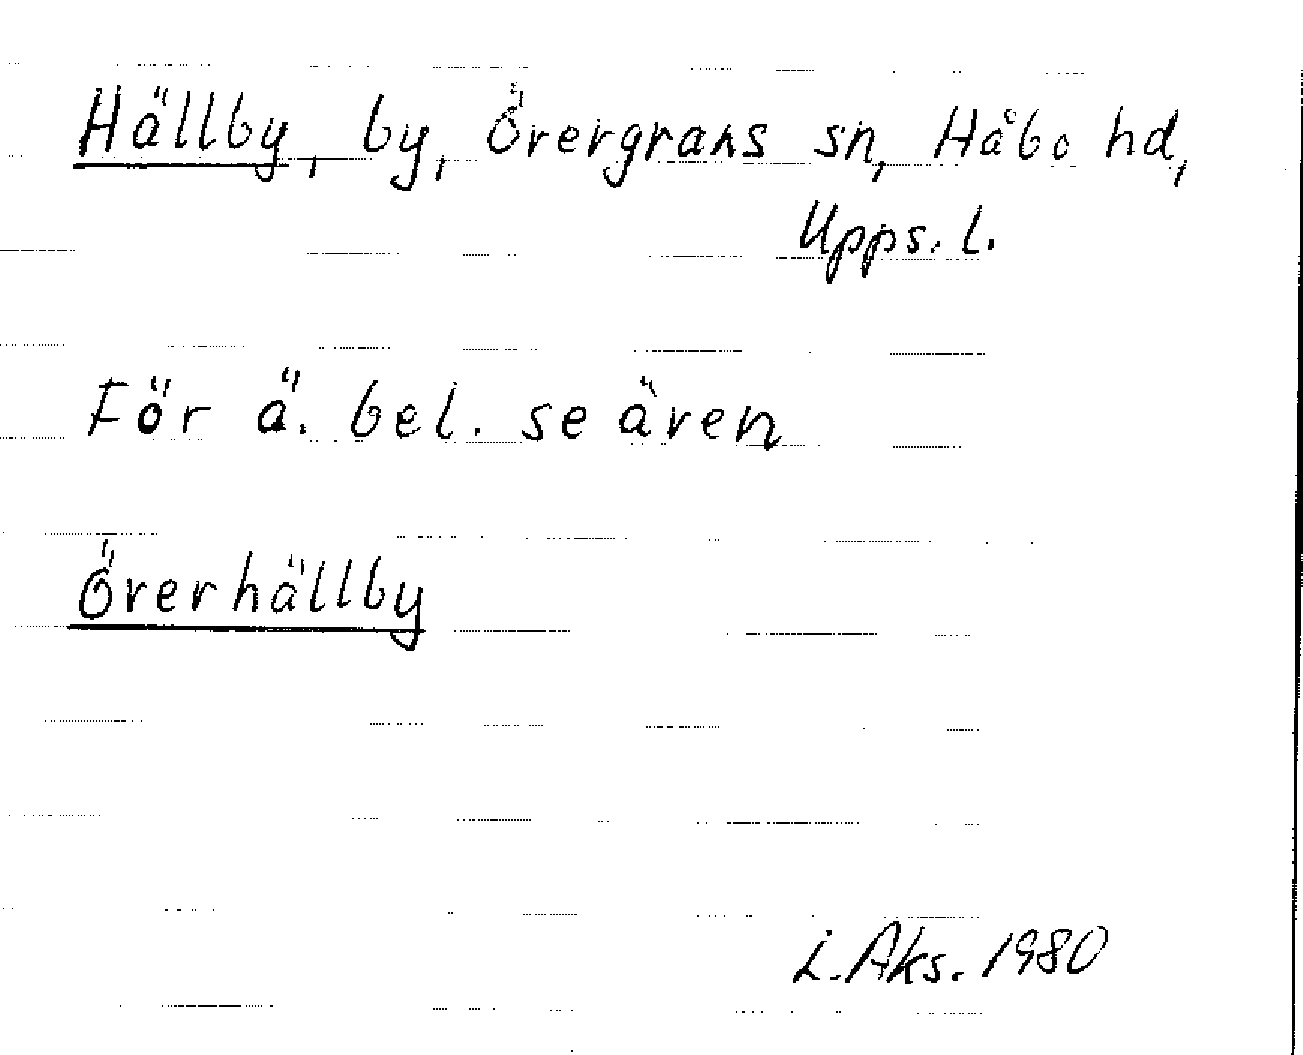 Hällby, by, Övergrans sn, Håbo hd,
Upps. l.
För ä. bel. se även
Överhällby
L. Aks. 1980